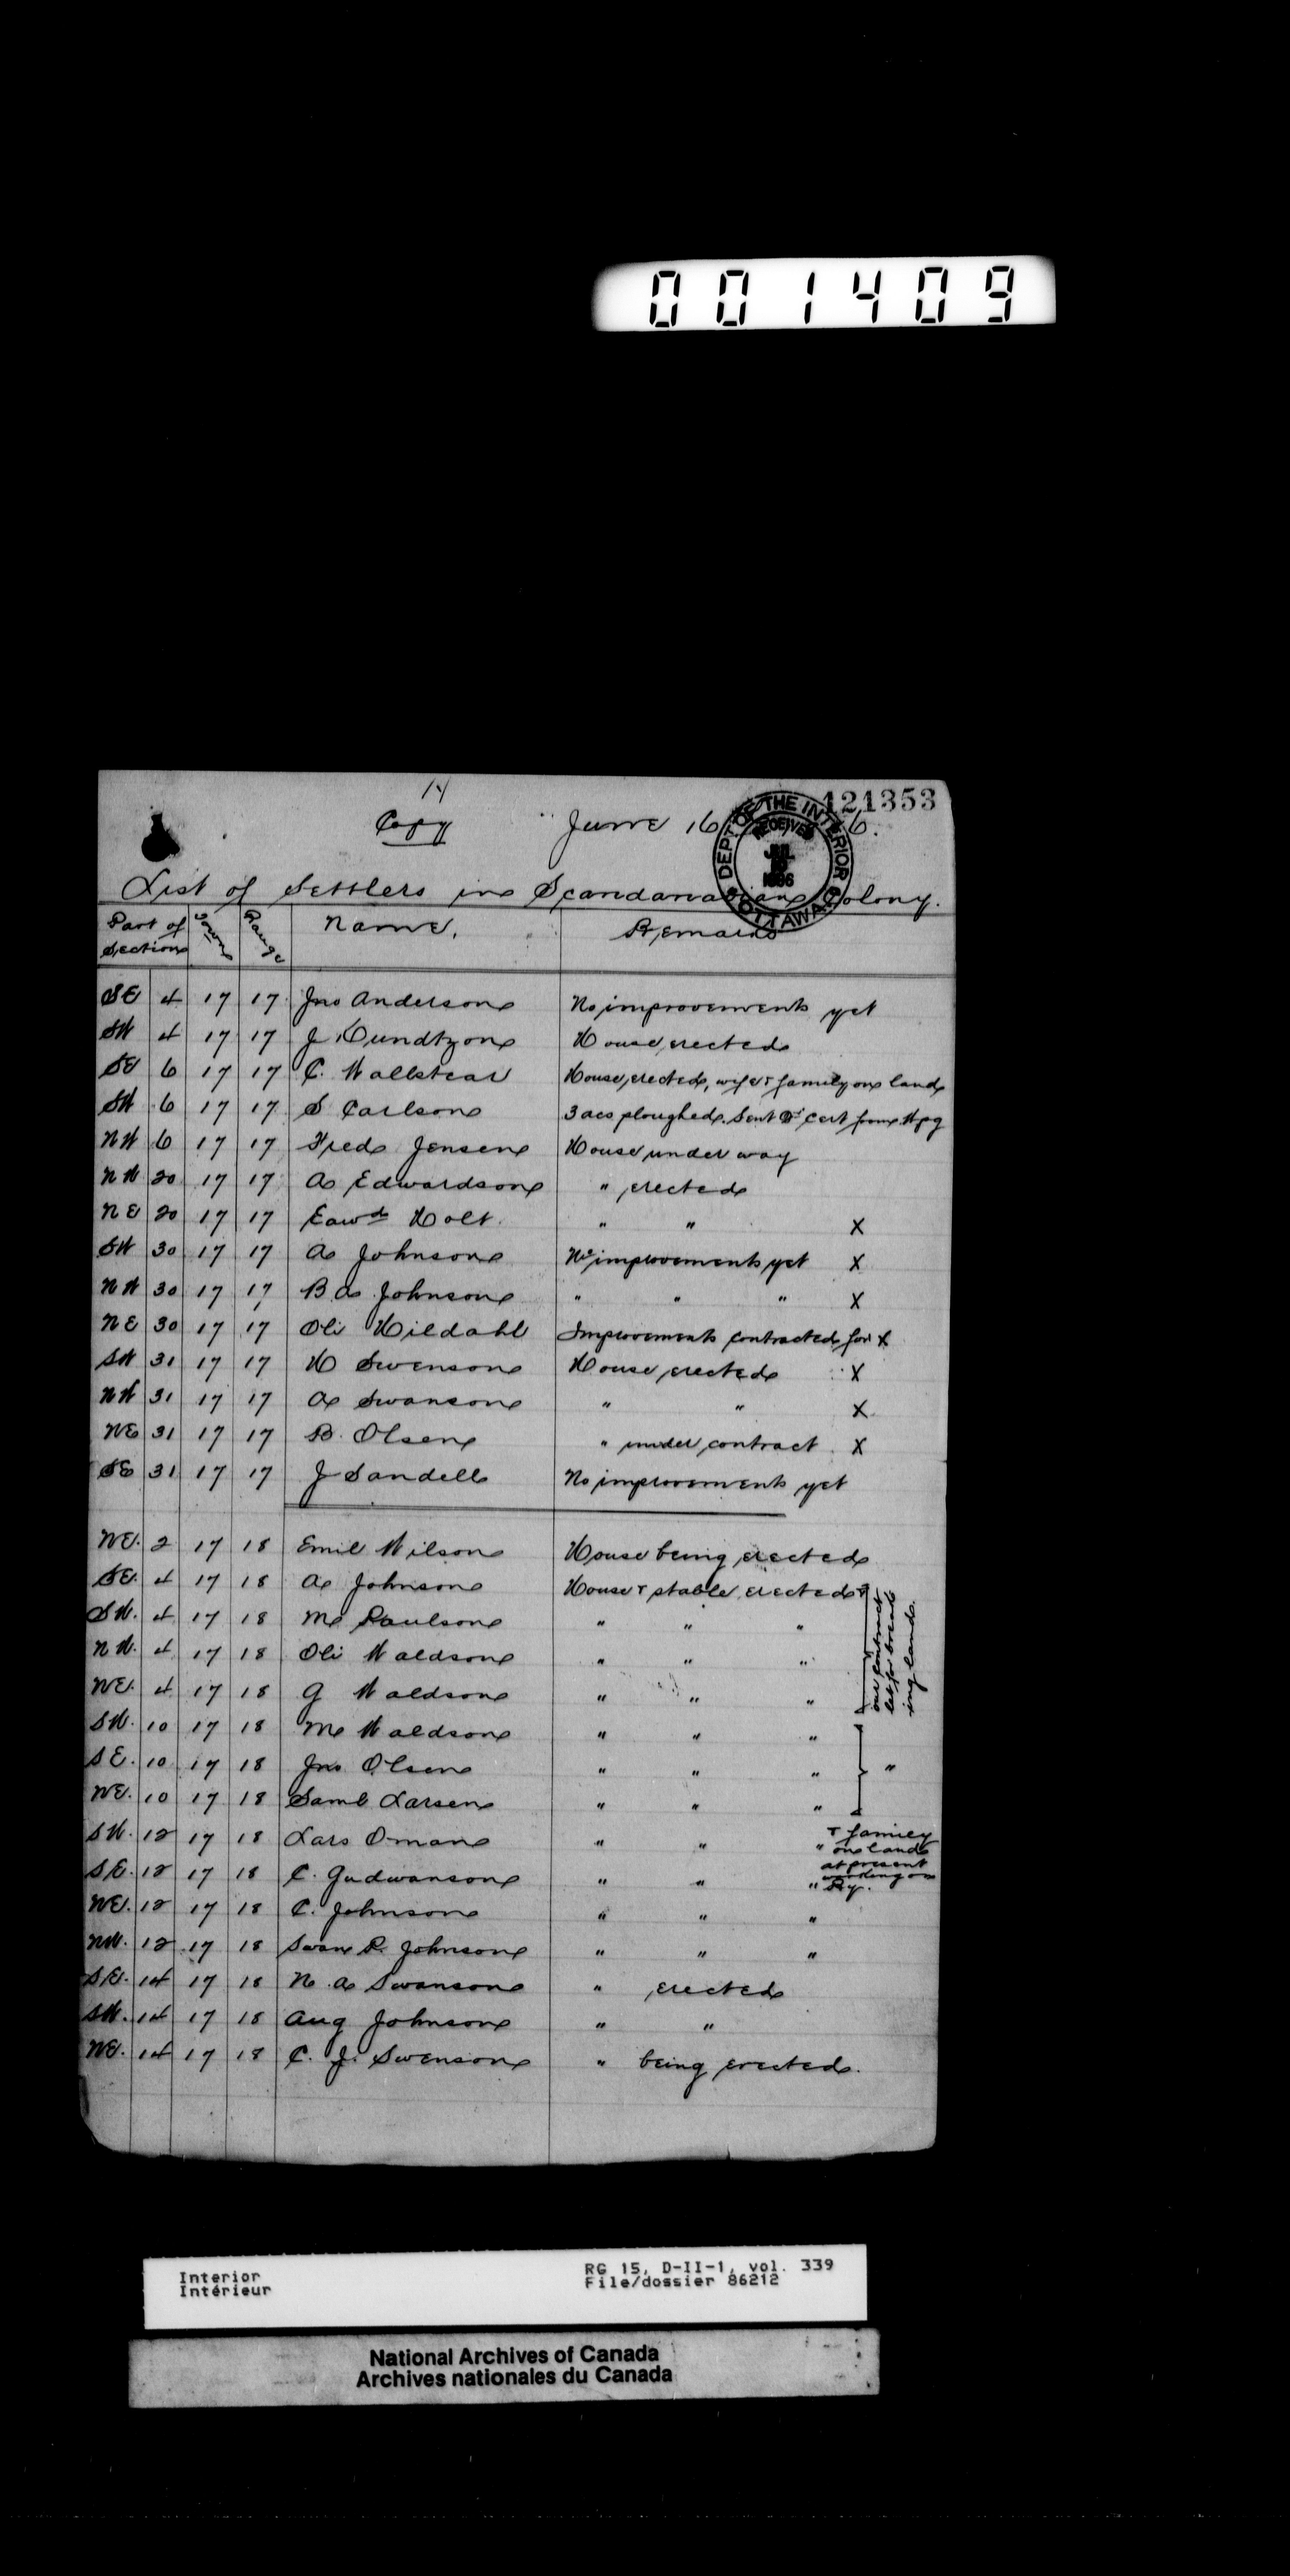 001409
14
121353
Copy June 16 6.
DEPT. OF THE INTERIOR OTTAWA
RECEIVED
1886
List of Settlers in Scandanavian Colony.
Part of Section Town Range Name. Remarks
SE 4 17 17 Jno Anderson No improvements yet
SW 4 17 17 J Hundtzon House erected
SE 6 17 17 C. Wallstear House erected, wife & family on land
SW 6 17 17 S Carlson 3 acs ploughed. Sent Cert from Wpg
NW 6 17 17 Fred Jensen House under way
NW 20 17 17 A Edwardson " erected
NE 20 17 17 Eawd Holt. " " X
SW 30 17 17 A Johnson No improvements yet X
NW 30 17 17 B A Johnson " " " X
NE 30 17 17 Oli Hildahl Improvements contracted for X
SW 31 17 17 H Swenson House erected X
NW 31 17 17 A Swanson " " X
NE 31 17 17 B. Olsen " under contract X
SE 31 17 17 J Sandell No improvements yet
NE. 2 17 18 Emil Wilson House being erected
SE. 4 17 18 A Johnson House & stable erected &
SW. 4 17 18 M Paulson " " "
NW. 4 17 18 Oli Waldson " " "
NE. 4 17 18 G Waldson " " "
our contract
let for break
ing land.
SW. 10 17 18 M Waldson " " "
SE. 10 17 18 Jno Olsen " " " "
NE. 10 17 18 Saml Larsen " " "
SW. 12 17 18 Lars Oman " " " & family
on land
SE. 12 17 18 C. Gudwanson " " " at present
working on
Ry.
NE. 12 17 18 C. Johnson " " "
NW. 12 17 18 Swan P. Johnson " " "
SE. 14 17 18 N. A Swanson " erected
SW. 14 17 18 Aug Johnson " "
NE. 14 17 18 C. J. Swenson " being erected.
Interior RG 15, D-II-1, vol. 339
Intérieur File/dossier 86212
National Archives of Canada
Archives nationales du Canada